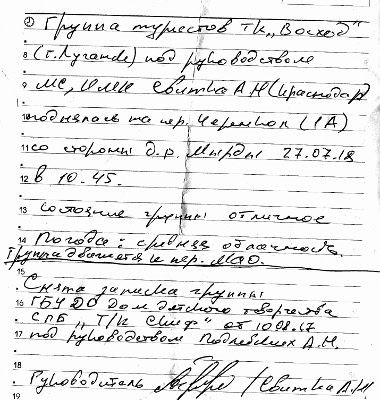 Группа туристов ТК „Восход"
8 (г. Луганск) под руководством
9 МС, ИМК Свитка А Н (Краснодар)
10 поднялась на пер. (1А)
11 со стороны д.р. Мырды 27.07.18
12 в 10.45.
13 состояние группы отличное
14 Погода: средняя облачность.
Группа двигается к пер. МАО.
15
Снята записка группы
16 ГБУ ДО Дом детского творчества
СПБ „Т/К Скиф" от 10.08.17
17 под руководством А.Н.
18
Руководитель Свитка А.Н
19